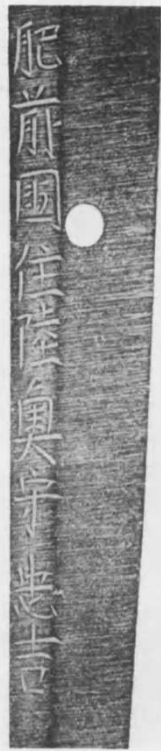 肥前國住陸奥守忠吉